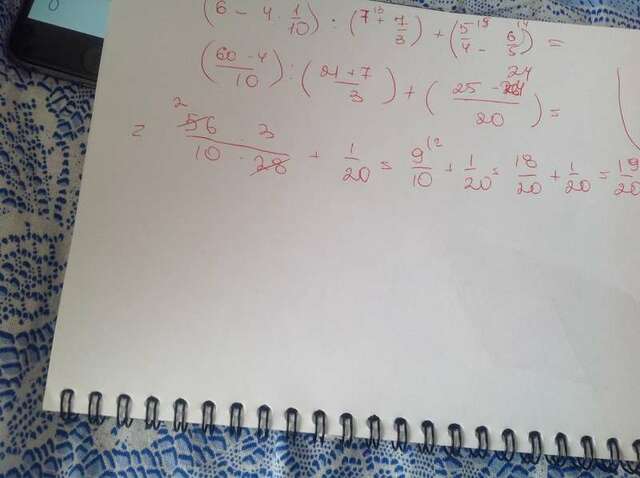 (6 - 4 · 1/10) : (7 + 7/3) + (5/4 - 6/5) =
(60 - 4 / 10) : (21 + 7 / 3) + (25 - 24 / 20) =
= 56 · 3 / 10 · 28 + 1/20 = 9/10 + 1/20 = 18/20 + 1/20 = 19/20